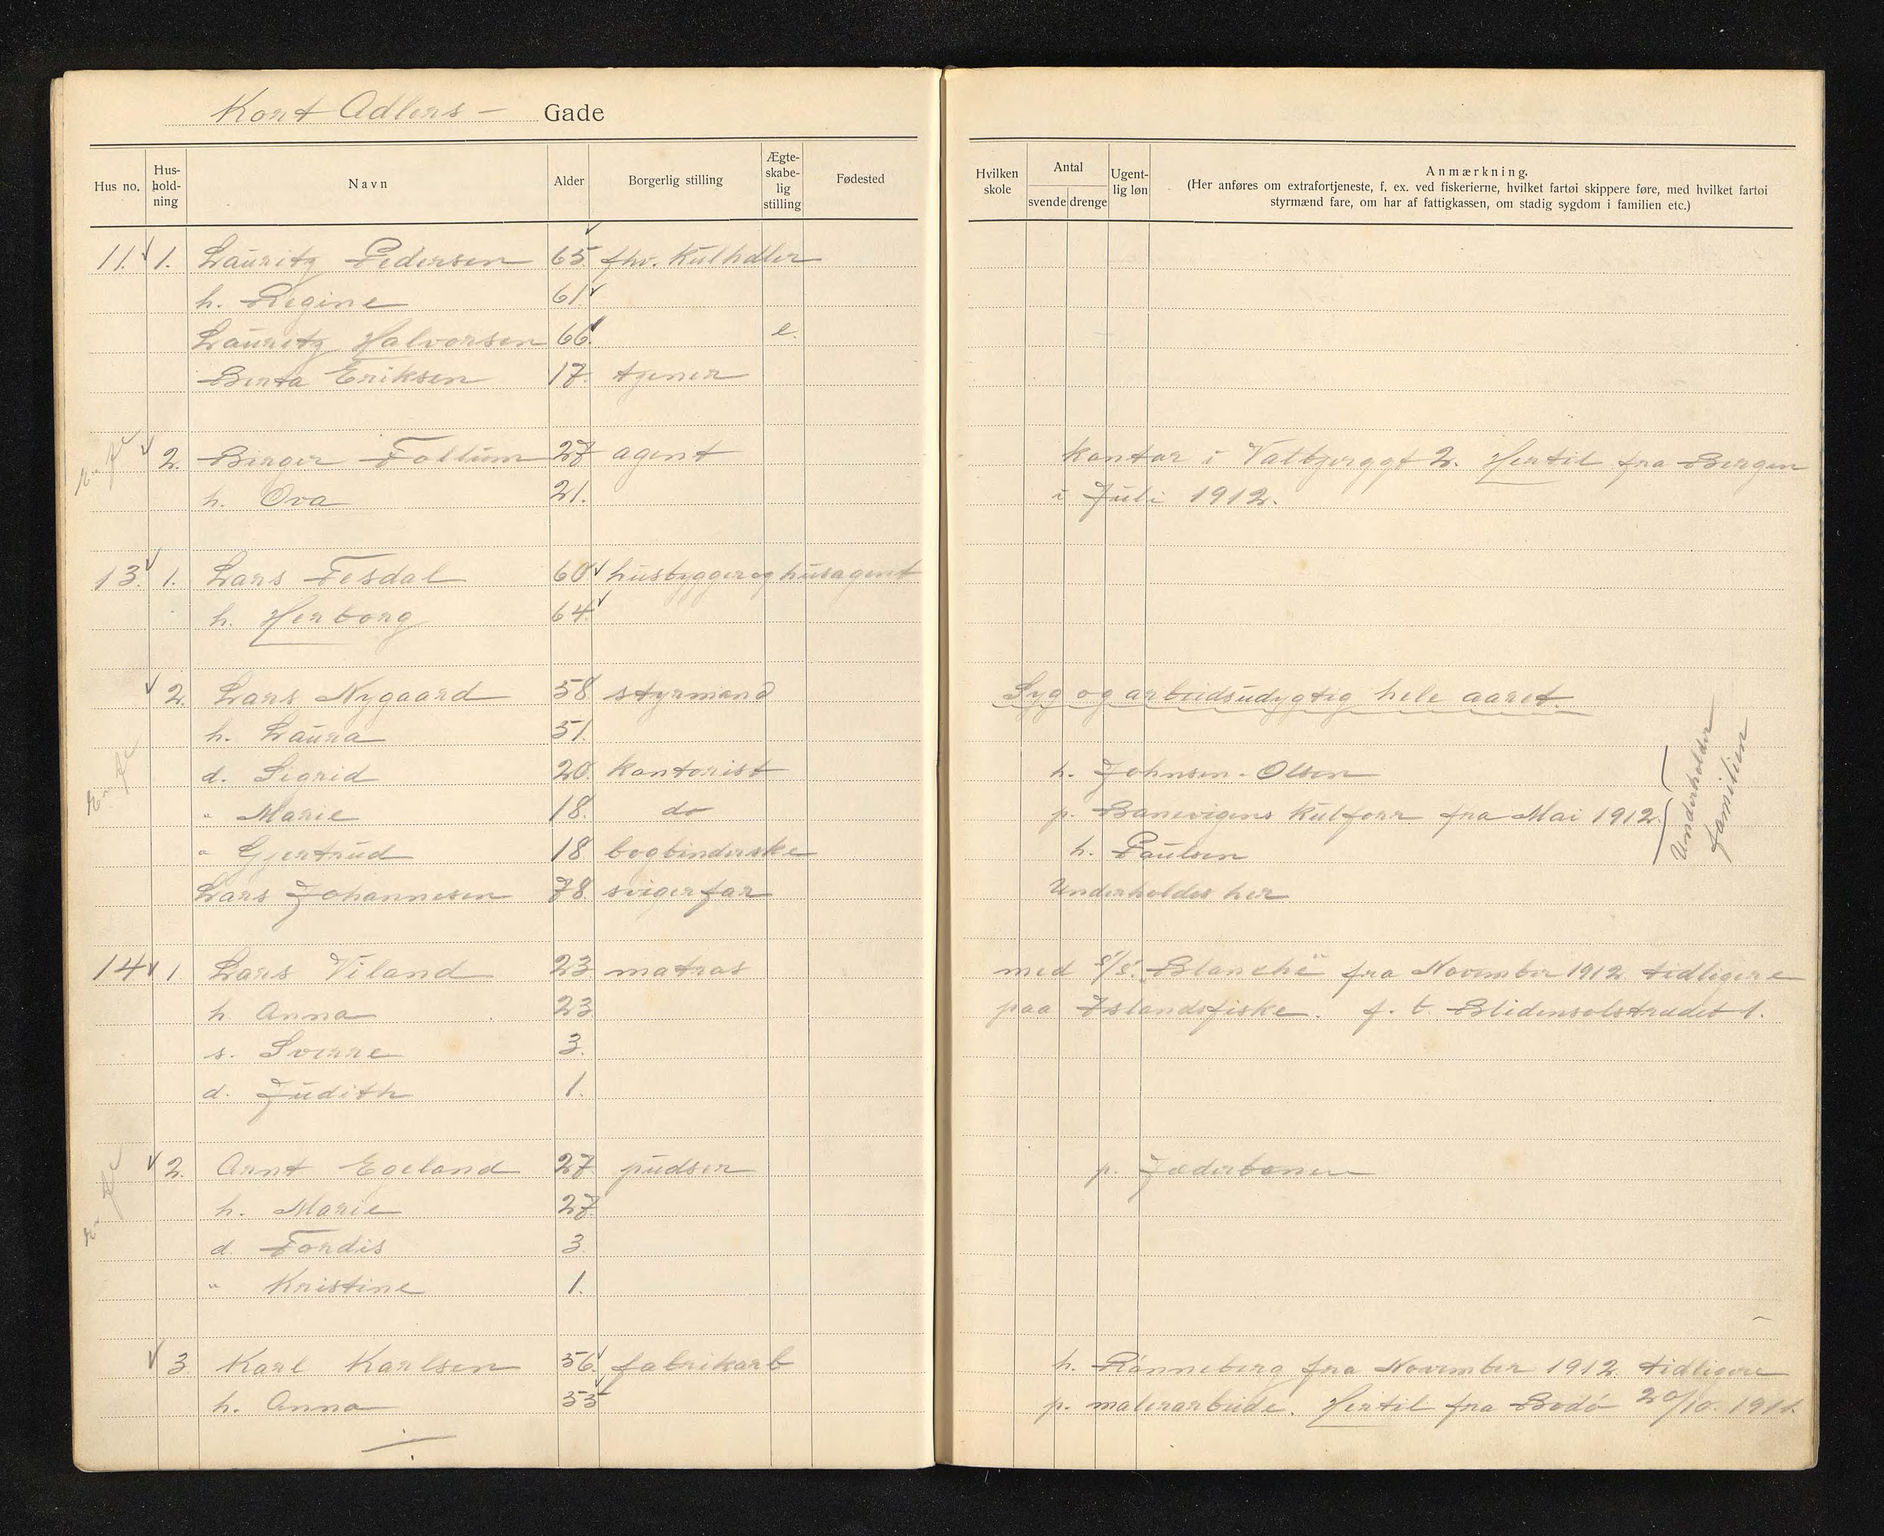 Kort Adlers- Gade
Hus no. Hus-hold-ning Navn Alder Borgerlig stilling Ægte-skabe-lig stilling Fødested
Hvilken skole Antal svende drenge Ugent-lig løn Anmærkning.
(Her anføres om extrafortjeneste, f. ex. ved fiskerierne, hvilket fartøi skippere føre, med hvilket fartøi
styrmænd fare, om har af fattigkassen, om stadig sygdom i familien etc.)
11. 1. Lauritz Pedersen 65 fhv. Kulhdler
h. Regine 61
Lauritz Halvorsen 66. e.
Berta Eriksen 17. tjener
2. Birger Follum 27 agent kontor i Valbjerggt 2. Hertil fra Bergen
h. Ova 21. i Juli 1912.
13. 1. Lars Tesdal 60 husbygger og husagent
h. Herborg 64.
2. Lars Nygaard 58 styrmand Syg og arbeidsudygtig hele aaret.
h. Laura 51.
d. Sigrid 20. kontorist h. Johnsen-Olsen
" Marie 18. do p. Banevigens Kulforr. fra Mai 1912.
" Gjertrud 18 bogbinderske h. Paulsen
Underholder
familien
Lars Johannesen 78. svigerfar Underholdes her
14 1. Lars Viland 23. matros med s/s. "Blanche" fra November 1912 tidligere
h. Anna 23 paa Islandsfiske. f. b. Blidensolstrædet 1.
s. Sverre 3.
d. Judith 1.
2. Arnt Egeland 27 pudser p. Jæderbanen
h. Marie 27
d. Tordis 3.
" Kristine 1.
3. Karl Karlsen 56. fabrikarb h. Rönneberg fra November 1912. tidligere
h. Anna 53 p. malerarbeide. Hertil fra Bodö 20/10. 1911.